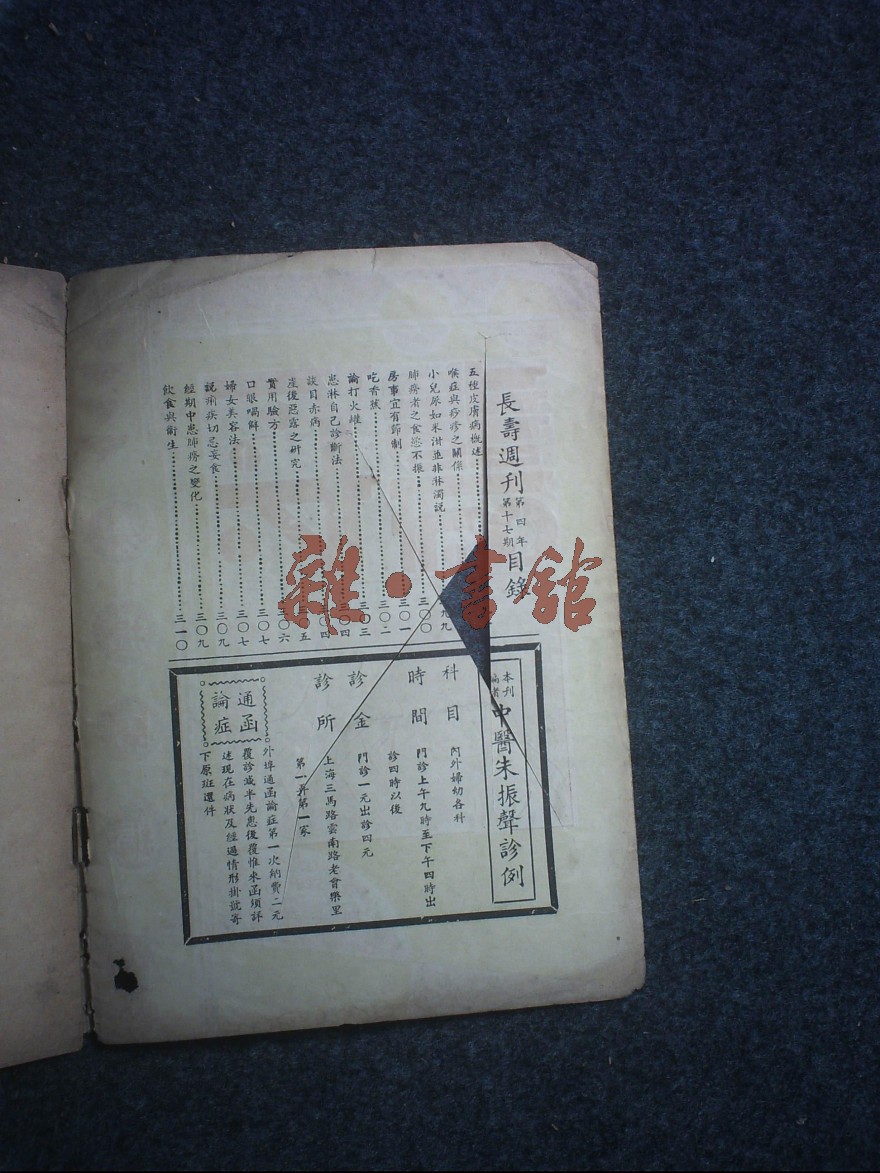 長壽週刊 第四年第十七期 目錄
五種皮膚病概述
喉症與痧疹之關係………九九
小兒尿如米泔並非淋濁説………三〇〇
肺癆者之食慾不振………三〇一
房事宜有節制………三〇二
吃香蕉………三〇三
論打火罐………〇四
患淋自己診斷法………〇四
談目赤病………五
產後惡露之研究………〇六
實用驗方………三〇七
口眼喎斜………三〇七
婦女美容法………三〇九
説痢疾切忌妄食………三〇九
經期中患肺癆之變化
飲食與衛生………三一〇
本刊編者 中醫朱振聲診例
科目 內外婦幼各科
時間 門診上午九時至下午四時出
診四時以後
診金 門診一元出診四元
診所 上海三馬路雲南路老會樂里
第一弄第一家
通函論症
外埠通函論症第一次納費二元
覆診減半先惠後覆惟來函須詳
述現在病狀及經過情形掛號寄
下原班還件
雜·書舘